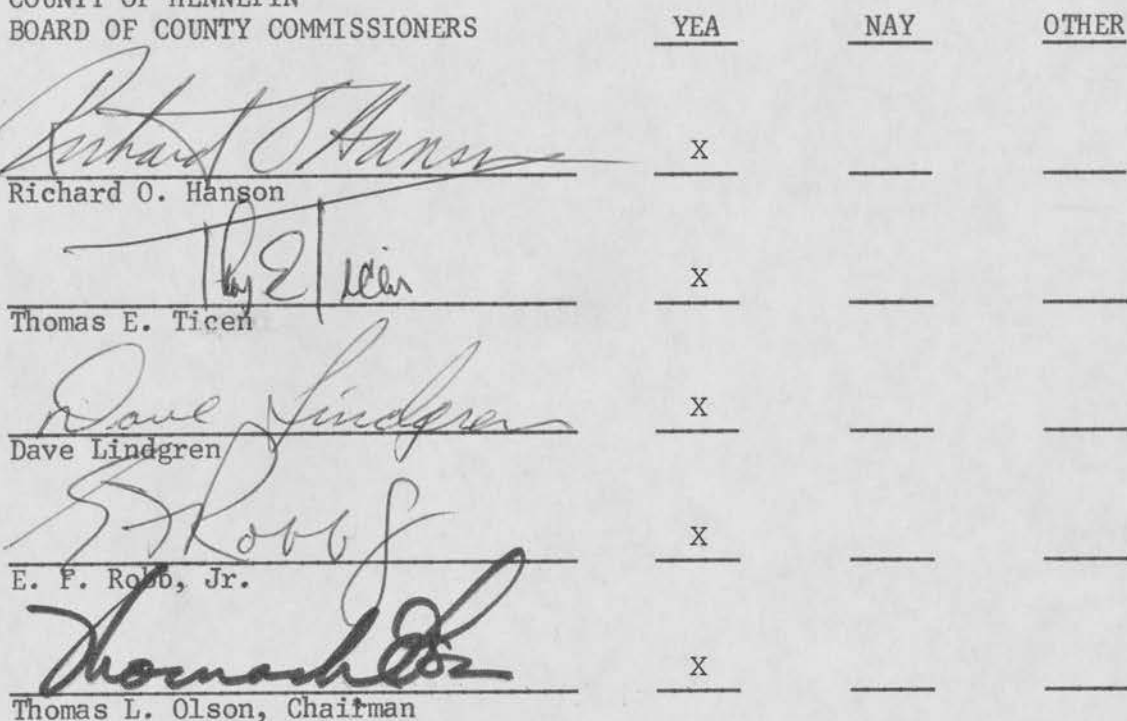 COUNTY OF HENNEPIN
BOARD OF COUNTY COMMISSIONERS YEA NAY OTHER
Richard O Hanson X
Richard O. Hanson
Thos E Ticen X
Thomas E. Ticen
Dave Lindgren X
Dave Lindgren
E F Robb Jr X
E. F. Robb, Jr.
X
Thomas L. Olson, Chairman